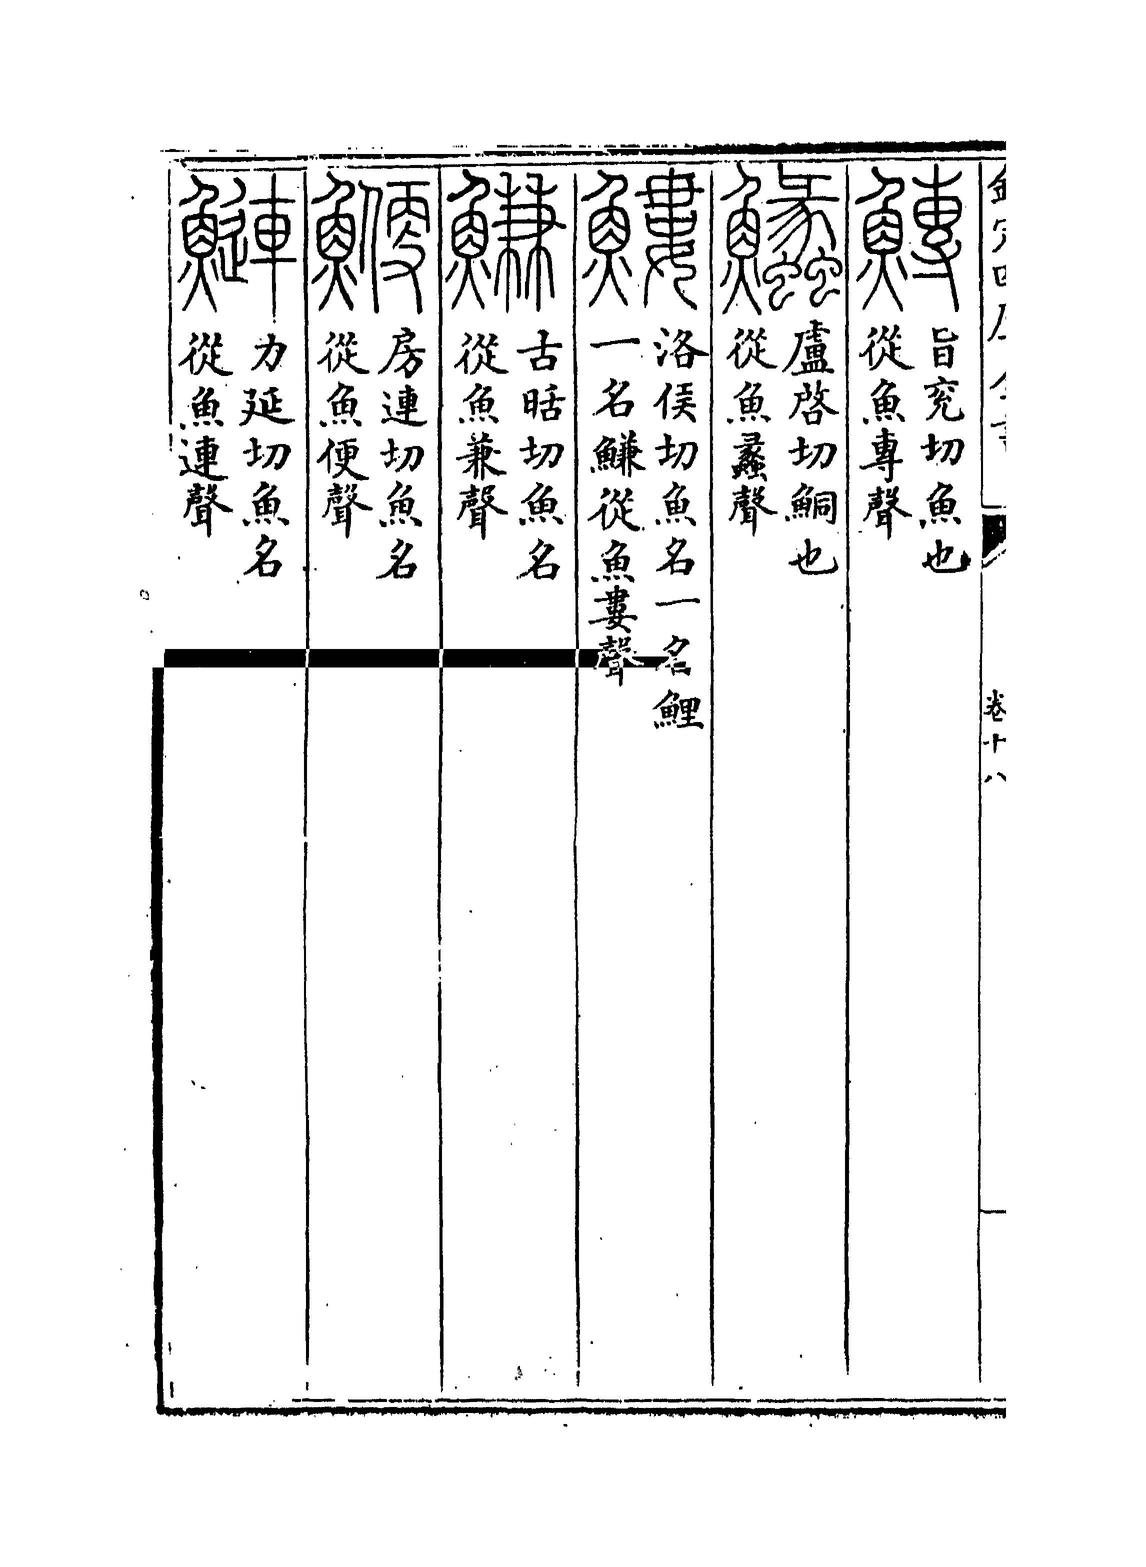 欽定四庫全書
卷十八
鱄
旨兖切魚也
從魚專聲
鱺
盧啓切鮦也
從魚蠡聲
鰱
洛侯切魚名一名鯉
一名鰜從魚婁聲
鰜
古甜切魚名
從魚兼聲
鯾
房連切魚名
從魚便聲
鰱
力延切魚名
從魚連聲